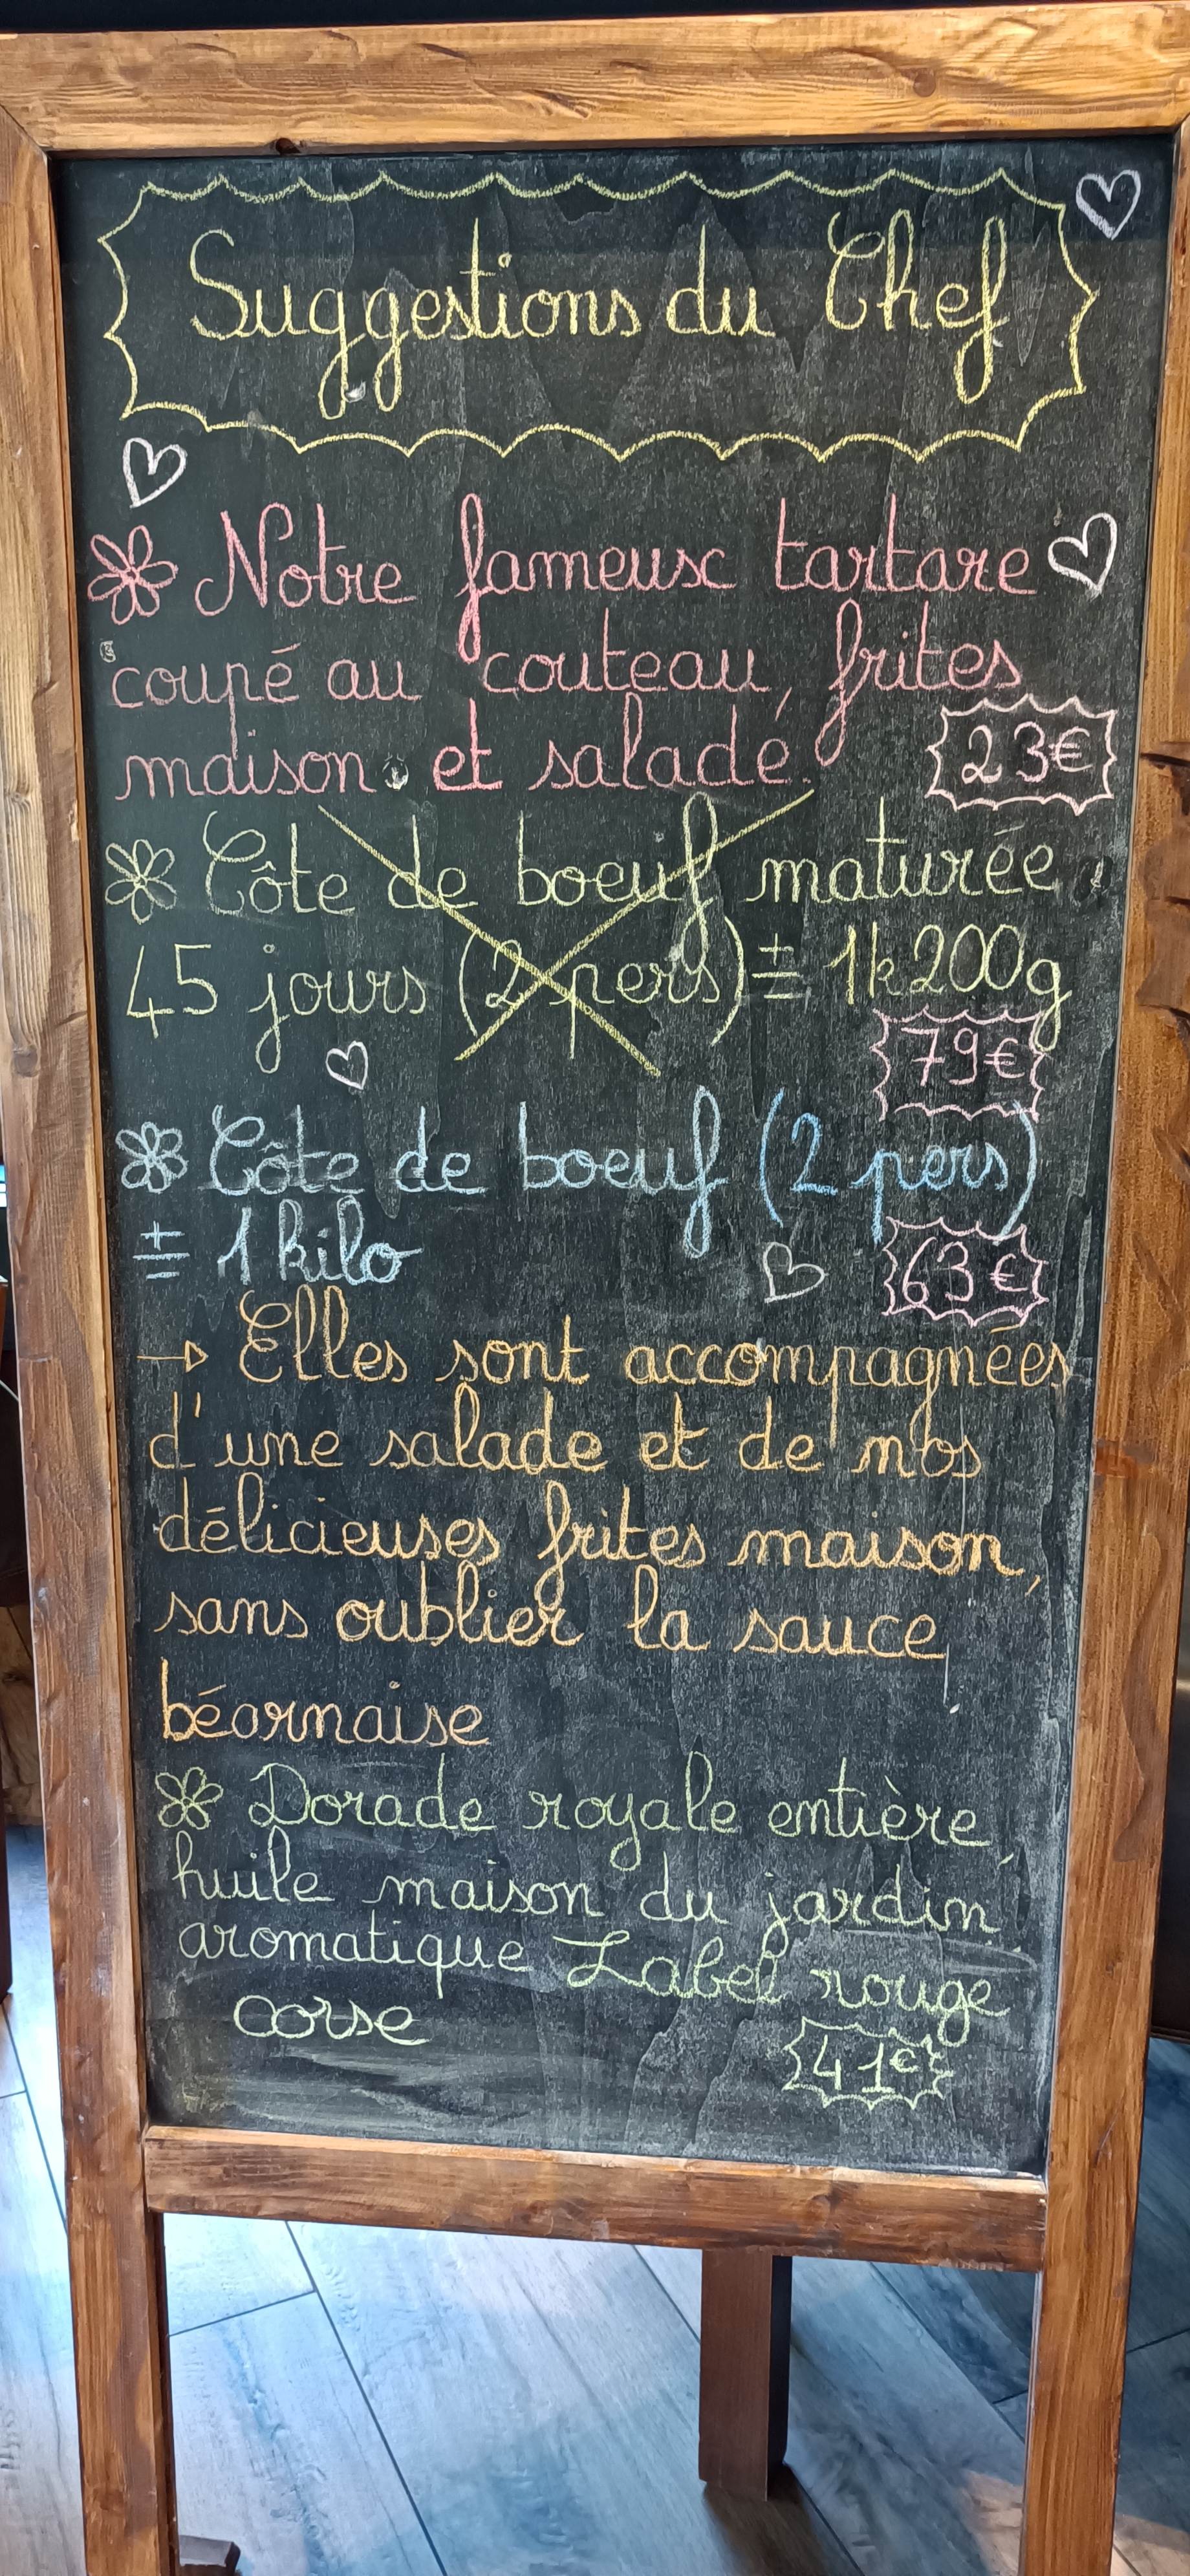 Suggestions du Chef
Notre fameux tartare
coupé au couteau, frites
maison et salade.
23€
Côte de boeuf maturée
45 jours (2 pers) ± 1k200g
79€
Côte de boeuf (2 pers)
± 1 kilo
63€
→ Elles sont accompagnées
d'une salade et de nos
délicieuses frites maison,
sans oublier la sauce
béarnaise
Dorade royale entière
huile maison du jardin
aromatique Label rouge
corse
41€